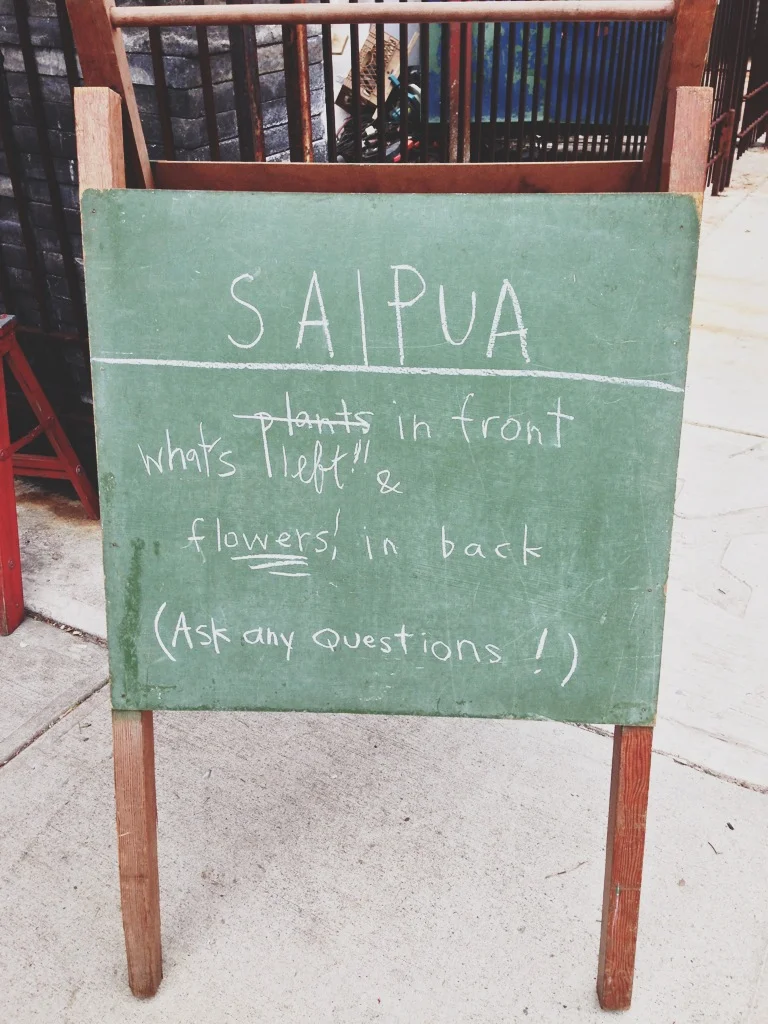 SAIPUA
plants in front
what's left!! &
flowers! in back
(Ask any Questions !)